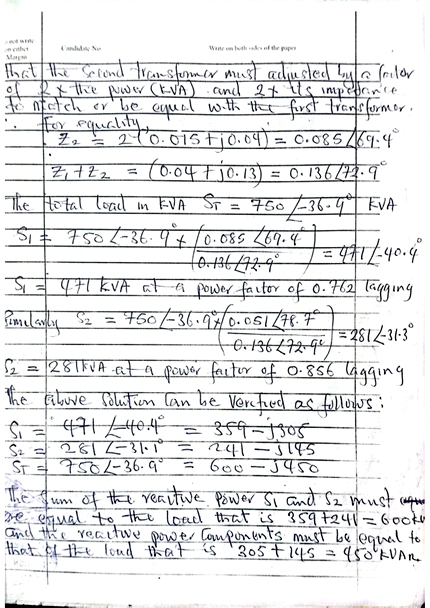 do not write
on either
Margin
Candidate No
Write on both sides of the paper
that the Second transformer must adjusted by a factor
of 2 x the power (KVA) and 2 x its impedance
to match or be equal with the first transformer.
For equality,
Z₂ = 2(0.015 + j0.04) = 0.085∠69.4°
Z₁ + Z₂ = (0.04 + j0.13) = 0.136∠72.9°
The total load in KVA S_T = 750∠-36.9° KVA
S₁ = 750∠-36.9° x (0.085∠69.4° / 0.136∠72.9°) = 471∠-40.4°
S₁ = 471 KVA at a power factor of 0.762 lagging
Similarly S₂ = 750∠-36.9° x (0.051∠78.7° / 0.136∠72.9°) = 281∠-31.3°
S₂ = 281KVA at a power factor of 0.856 lagging
The above Solution Can be Verified as follows:
S₁ = 471∠-40.4° = 359 - j305
S₂ = 281∠-31.1° = 241 - j145
S_T = 750∠-36.9° = 600 - j450
The Sum of the reactive power S₁ and S₂ must
be equal to the load that is 359+241 = 600
and the reactive power Components must be equal to
that of the load that is 305 + 145 = 450 KVAR